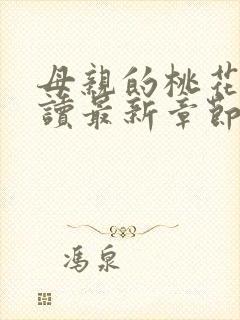 母親的桃花
讀最新章節
馮泉